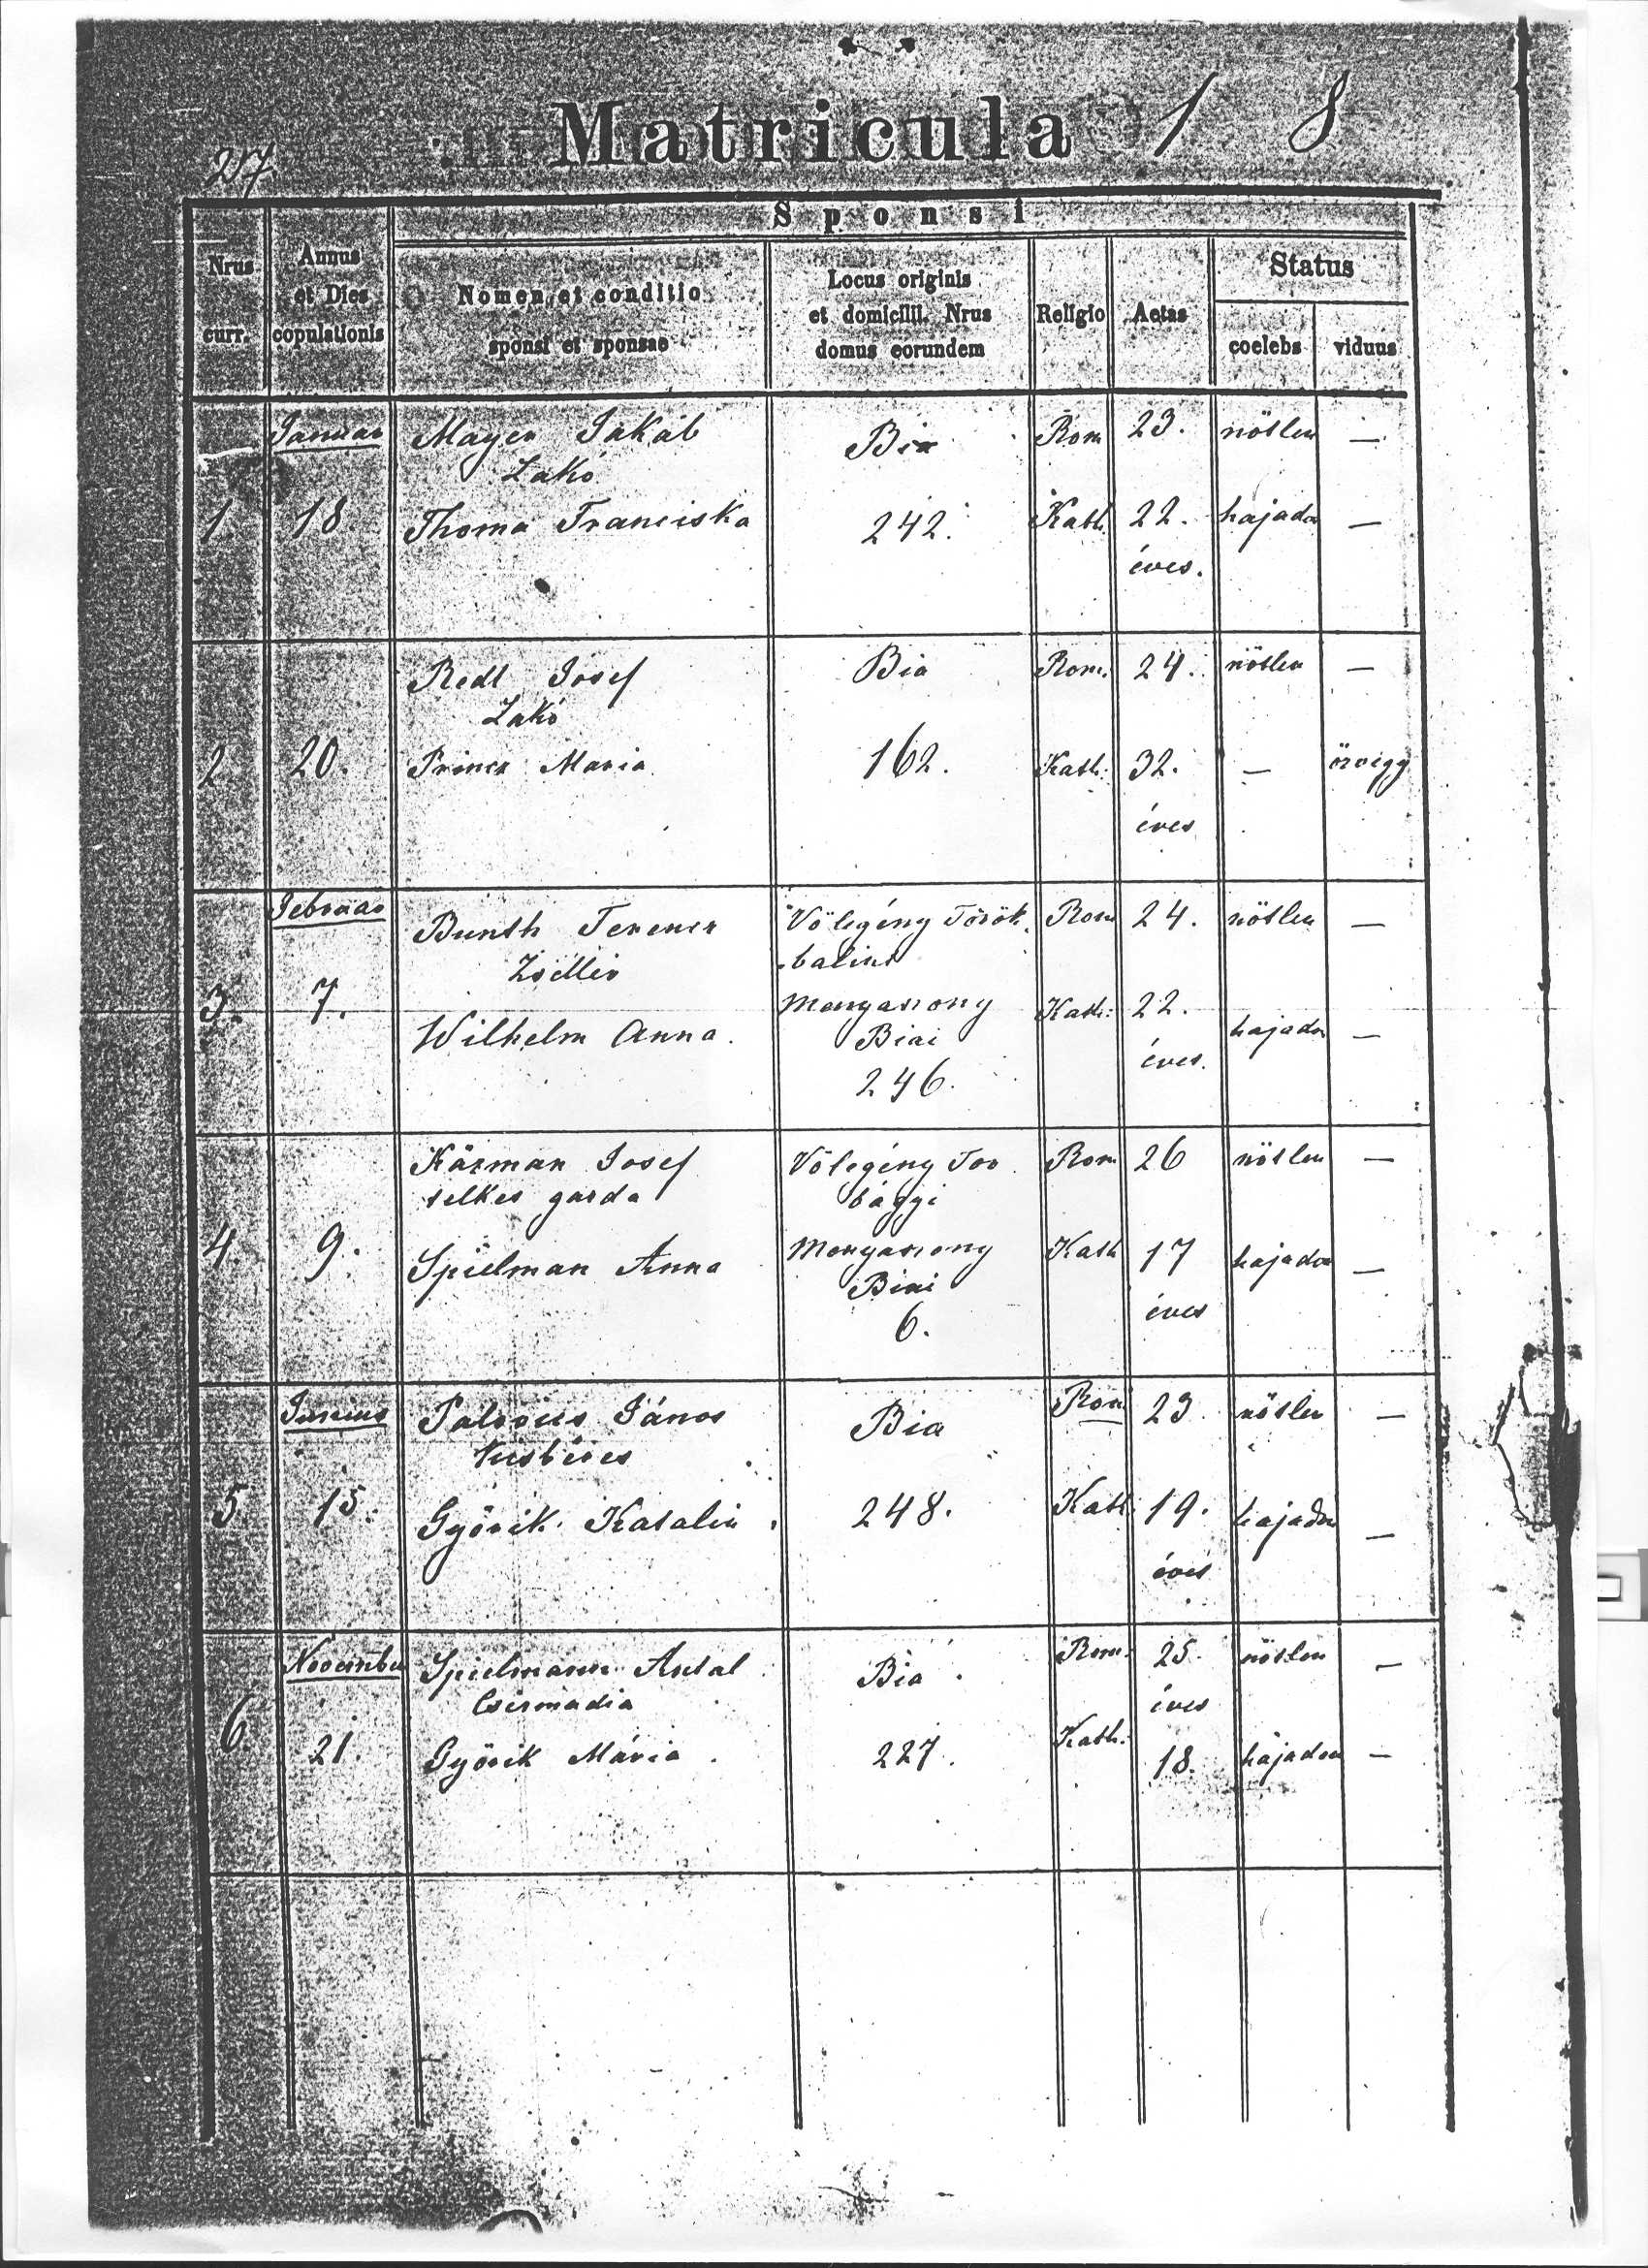 27.
Matricula 1 8
Sponsi
Nrus curr.
Annus et Dies copulationis
Nomen et conditio sponsi et sponsae
Locus originis et domicilii. Nrus domus eorundem
Religio
Aetas
Status
coelebs
viduus
Januar Mayer Jakab Bia Rom 23. nötlen —
Lakó
1. 18. Thoma Franciska 242. Kath. 22. hajadon —
éves.
Redl Josef Bia Rom. 24. nötlen —
Lakó
2. 20. Princz Maria 162. Kath. 32. — özvegy
éves
Februar Bunth Ferencz Völegény Török Rom 24. nötlen —
Zsellér balint
3. 7. Menyasszony Kath. 22.
Wilhelm Anna. Biai éves. hajadon —
246.
Kázman Josef Völegény Tor Rom 26 nötlen —
telkes gazda bágyi
4. 9. Spielman Anna Menyasszony Kath 17 hajadon —
Biai éves
6.
Junius János Bia Rom 23. nötlen —
5. 15. Györik Katalin 248. Kath 19. hajadon —
éves
November Spielmann Antal Bia Rom. 25. nötlen —
Csizmadia éves
6. 21. Györik Mária 227. Kath. 18. hajadon —